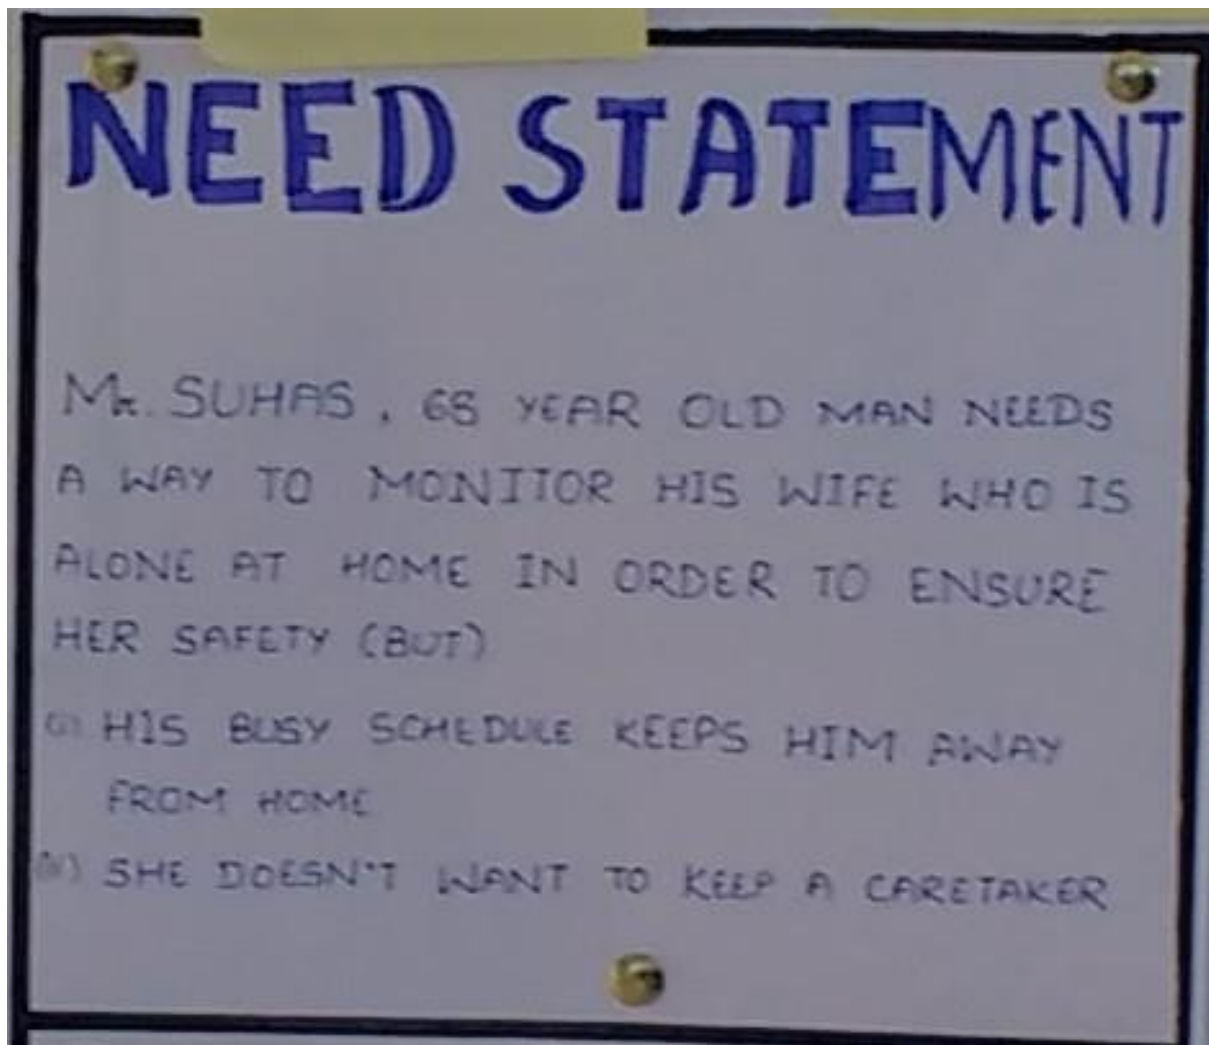 NEED STATEMENT
Mr. SUHAS, 68 YEAR OLD MAN NEEDS
A WAY TO MONITOR HIS WIFE WHO IS
ALONE AT HOME IN ORDER TO ENSURE
HER SAFETY (BUT)
(i) HIS BUSY SCHEDULE KEEPS HIM AWAY
FROM HOME
(ii) SHE DOESN'T WANT TO KEEP A CARETAKER